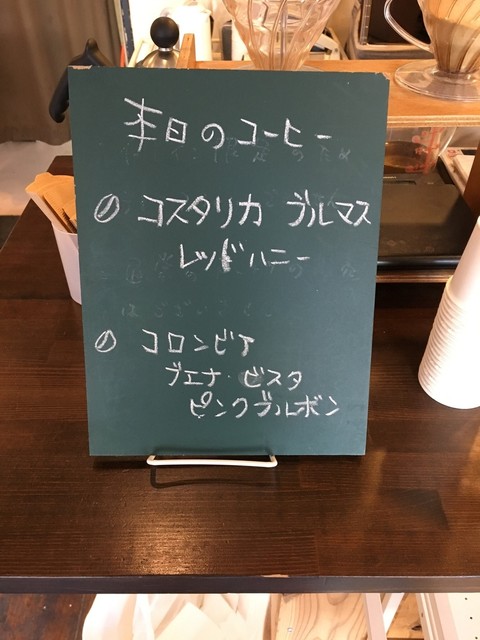 本日のコーヒー
コスタリカ ブルマス
レッドハニー
コロンビア
ブエナ・ビスタ
ピンクブルボン